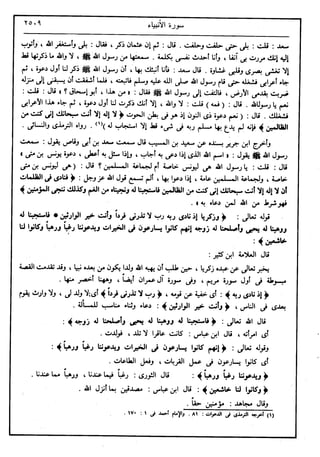 سورة الأنبياء ٢٥٠٩
سعد : قلت : بلى حتى حلفت وحلفت . قال : ثم إن عثمان ذكر ، فقال : بلى وأستغفر الله ، وأتوب
إليه إنك مررت بى آنفا ، وأنا أحدث نفسى بكلمة . سمعتها من رسول الله ﷺ ، لا والله ما ذكرتها قط
إلا تغشى بصرى وقلبى غشاوة . قال سعد : فأنا أنبئك بها ، أن رسول الله ﷺ ذكر لنا أول دعوة ، ثم
جاء أعرابى فشغله حتى قام رسول الله صلى الله عليه وسلم فاتبعته ، فلما أشفقت أن يسبقنى إلى منزله
ضربت بقدمى الأرض ، فالتفت إلى رسول الله ﷺ ، فقال : « من هذا ، أبو إسحاق ؟ » قال : قلت :
نعم يا رسول الله . قال : ( فمه ) قلت : لا والله ، إلا أنك ذكرت لنا أول دعوة ، ثم جاء هذا الأعرابى
فشغلك . قال : ( نعم دعوة ذى النون إذ هو فى بطن الحوت ﴿ لا إله إلا أنت سبحانك إنى كنت من
الظالمين ﴾ فإنه لم يدع بها مسلم ربه فى شىء قط إلا استجاب له )(١) . رواه الترمذى والنسائى .
وأخرج ابن جرير بسنده عن سعيد بن المسيب قال : سمعت سعد بن أبى وقاص يقول : سمعت
رسول الله ﷺ يقول : « اسم الله الذى إذا دعى به أجاب ، وإذا سئل به أعطى ، دعوة يونس بن متى »
قال : قلت : يا رسول الله هى ليونس خاصة أم لجماعة المسلمين ؟ قال : (هى ليونس بن متى
خاصة ، ولجماعة المسلمين عامة ، إذا دعوا بها ، ألم تسمع قول الله عز وجل : ﴿ فنادى فى الظلمات
أن لا إله إلا أنت سبحانك إنى كنت من الظالمين فاستجبنا له ونجيناه من الغم وكذلك ننجى المؤمنين ﴾
فهو شرط من الله لمن دعاه به » .
قوله تعالى : ﴿ وزكريا إذ نادى ربه رب لا تذرنى فرداً وأنت خير الوارثين * فاستجبنا له
ووهبنا له يحيى وأصلحنا له زوجه إنهم كانوا يسارعون فى الخيرات ويدعوننا رغباً ورهباً وكانوا لنا
خاشعين ﴾ :
قال العلامة ابن كثير :
يخبر تعالى عن عبده زكريا ، حين طلب أن يهبه الله ولدا يكون من بعده نبيا ، وقد تقدمت القصة
مبسوطة فى أول سورة مريم ، وفى سورة آل عمران أيضاً ، وههنا أخصر منها .
﴿ إذ نادى ربه ﴾ : أى خفية عن قومه ، ﴿ رب لا تذرنى فرداً ﴾ أى : لا ولد لى ، ولا وارث يقوم
بعدى فى الناس ، ﴿ وأنت خير الوارثين ﴾ : دعاء وثناء مناسب للمسألة .
قال الله تعالى : ﴿ فاستجبنا له ووهبنا له يحيى وأصلحنا له زوجه ﴾ :
أى امرأته ، قال ابن عباس : كانت عاقرا لا تلد ، فولدت .
وقوله تعالى : ﴿ إنهم كانوا يسارعون فى الخيرات ويدعوننا رغباً ورهباً ﴾ :
أى كانوا يسارعون فى عمل القربات ، وفعل الطاعات .
﴿ ويدعوننا رغباً ورهباً ﴾ : قال الثورى : رغبا فيما عندنا ، ورهباً مما عندنا .
﴿ وكانوا لنا خاشعين ﴾ : قال ابن عباس : مصدقين بما أنزل الله .
وقال مجاهد : مؤمنين حقاً .
(١) أخرجه الترمذى فى الدعوات : ٨١ . والإمام أحمد فى ١ : ١٧٠ .